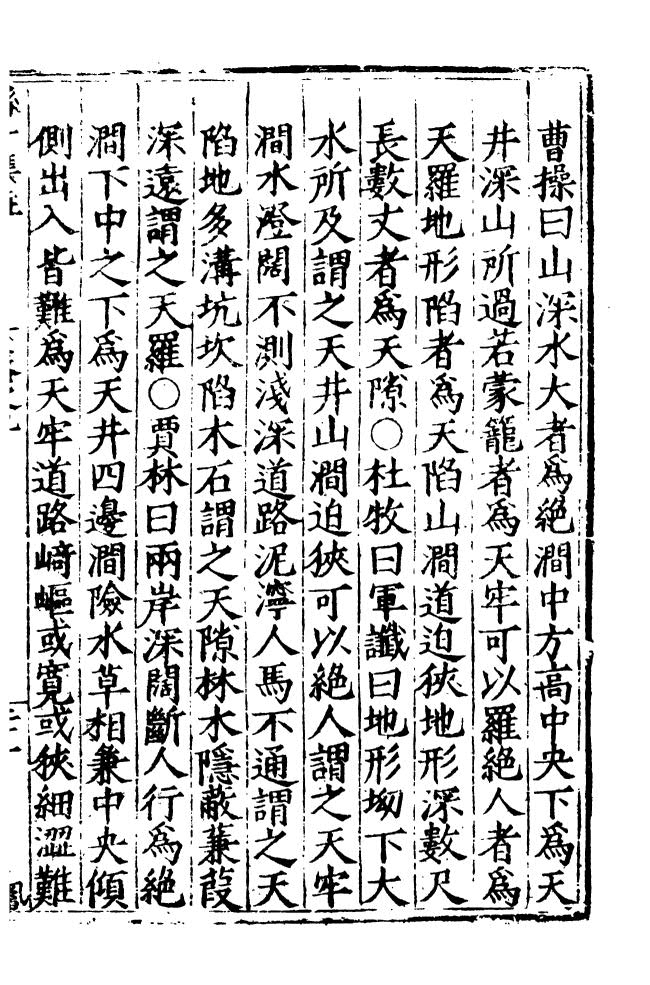 曹操曰山深水大者爲絶澗中方高中央下爲天
井深山所過若蒙籠者爲天牢可以羅絶人者爲
天羅地形陷者爲天陷山澗道迫狹地形深數尺
長數丈者爲天隙○杜牧曰軍讖曰地形坳下大
水所及謂之天井山澗迫狹可以絶人謂之天牢
澗水澄闊不測淺深道路泥濘人馬不通謂之天
陷地多溝坑坎陷木石謂之天隙林木隱蔽蒹葭
深遠謂之天羅○賈林曰兩岸深闊斷人行爲絶
澗下中之下爲天井四邊澗險水草相兼中央傾
側出入皆難爲天牢道路崎嶇或寬或狹細澀難